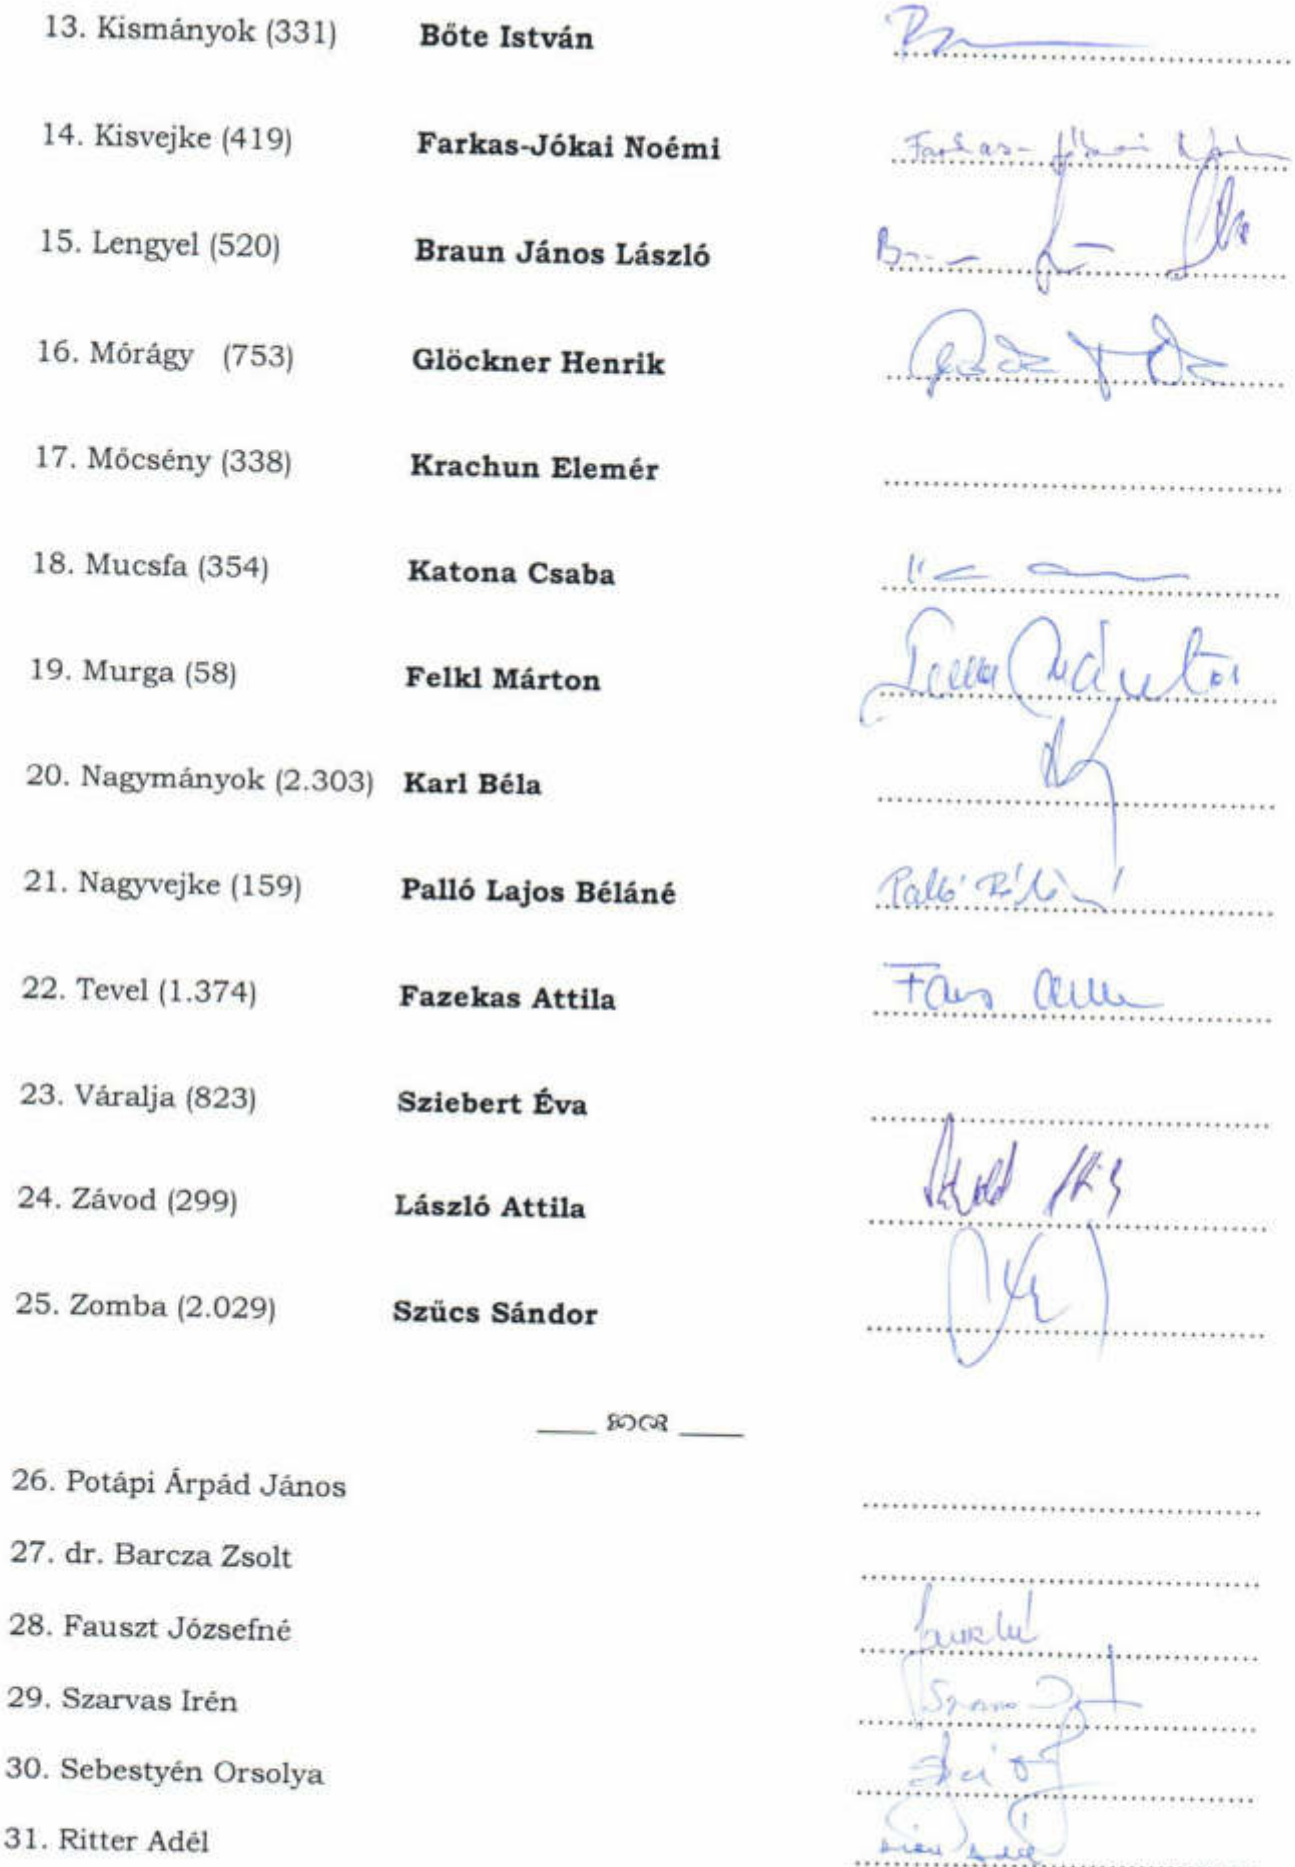 13. Kismányok (331) Bőte István
14. Kisvejke (419) Farkas-Jókai Noémi Farkas-Jókai
15. Lengyel (520) Braun János László
16. Mórágy (753) Glöckner Henrik
17. Mőcsény (338) Krachun Elemér
18. Mucsfa (354) Katona Csaba
19. Murga (58) Felkl Márton Márton
20. Nagymányok (2.303) Karl Béla
21. Nagyvejke (159) Palló Lajos Béláné Palló Béláné
22. Tevel (1.374) Fazekas Attila
23. Váralja (823) Sziebert Éva
24. Závod (299) László Attila
25. Zomba (2.029) Szűcs Sándor
26. Potápi Árpád János
27. dr. Barcza Zsolt
28. Fauszt Józsefné
29. Szarvas Irén
30. Sebestyén Orsolya
31. Ritter Adél